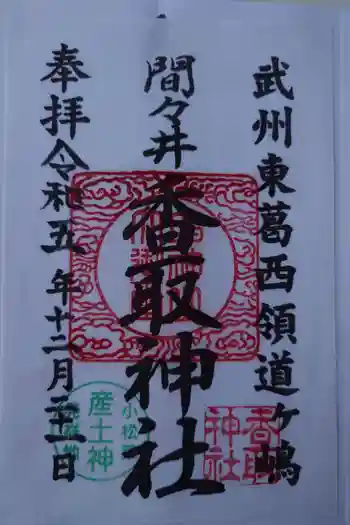 武州東葛西領道ヶ嶋
間々井
香取神社
奉拝 令和五年十二月 日
香取
神社
小松
産土神